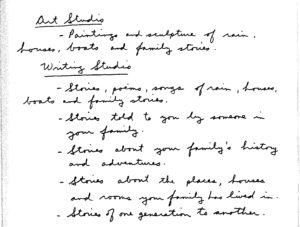 Art Studio
- Paintings and sculpture of rain,
houses, boats and family stories.
Writing Studio
- Stories, poems, songs of rain, houses,
boats and family stories.
- Stories told to you by someone in
your family.
- Stories about your family's history
and adventures.
- Stories about the places, houses
and rooms your family has lived in.
- Stories of one generation to another.